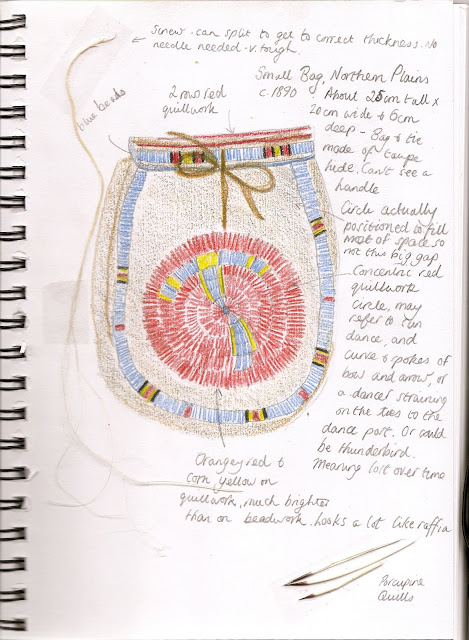 Sinew. can split to get to correct thickness. No
needle needed - v. tough.
Small Bag, Northern Plains
c. 1890. About 25cm tall x
20cm wide & 6cm
deep - Bag & tie
made of taupe
hide. Can't see a
handle
blue beads
2 rows red
quillwork
Circle actually
positioned to fill
most of space so
not this big gap
Concentric red
quillwork
circle, may
refer to sun
dance, and
curve & spokes of
bow and arrow, or
a dancer straining
on the ties to the
dance port. Or could
be thunderbird.
Meaning lost over time
Orangey red &
corn yellow on
quillwork, much brighter
than on beadwork. Looks a lot like raffia
Porcupine
Quills